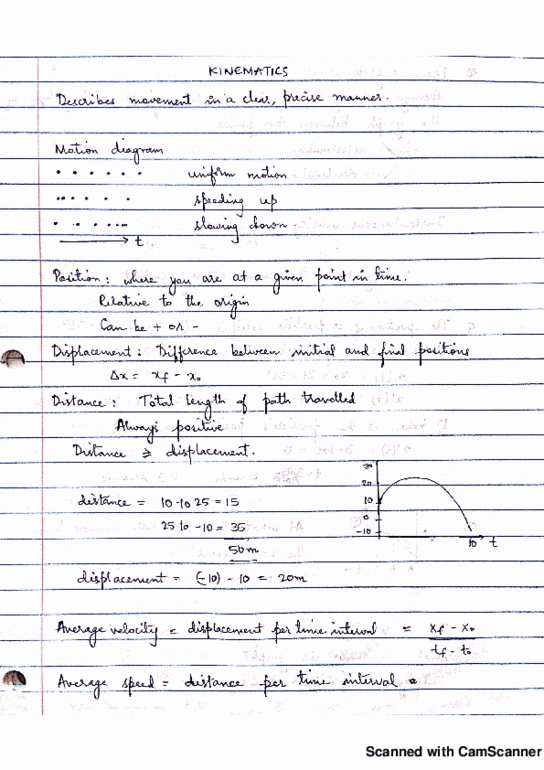 KINEMATICS
Describes movement in a clear, precise manner.
Motion diagram
uniform motion
speeding up
slowing down
t
Position: where you are at a given point in time.
Relative to the origin
Can be + or -
Displacement: Difference between initial and final positions
Δx = xf - x₀
Distance: Total length of path travelled
Always positive
Distance ≥ displacement.
30
20
10
0
-10
10 t
distance = 10 to 25 = 15
25 to -10 = 35
50m
displacement = (-10) - 10 = 20m
Average velocity = displacement per time interval = xf - x₀
tf - t₀
Average speed = distance per time interval
Scanned with CamScanner